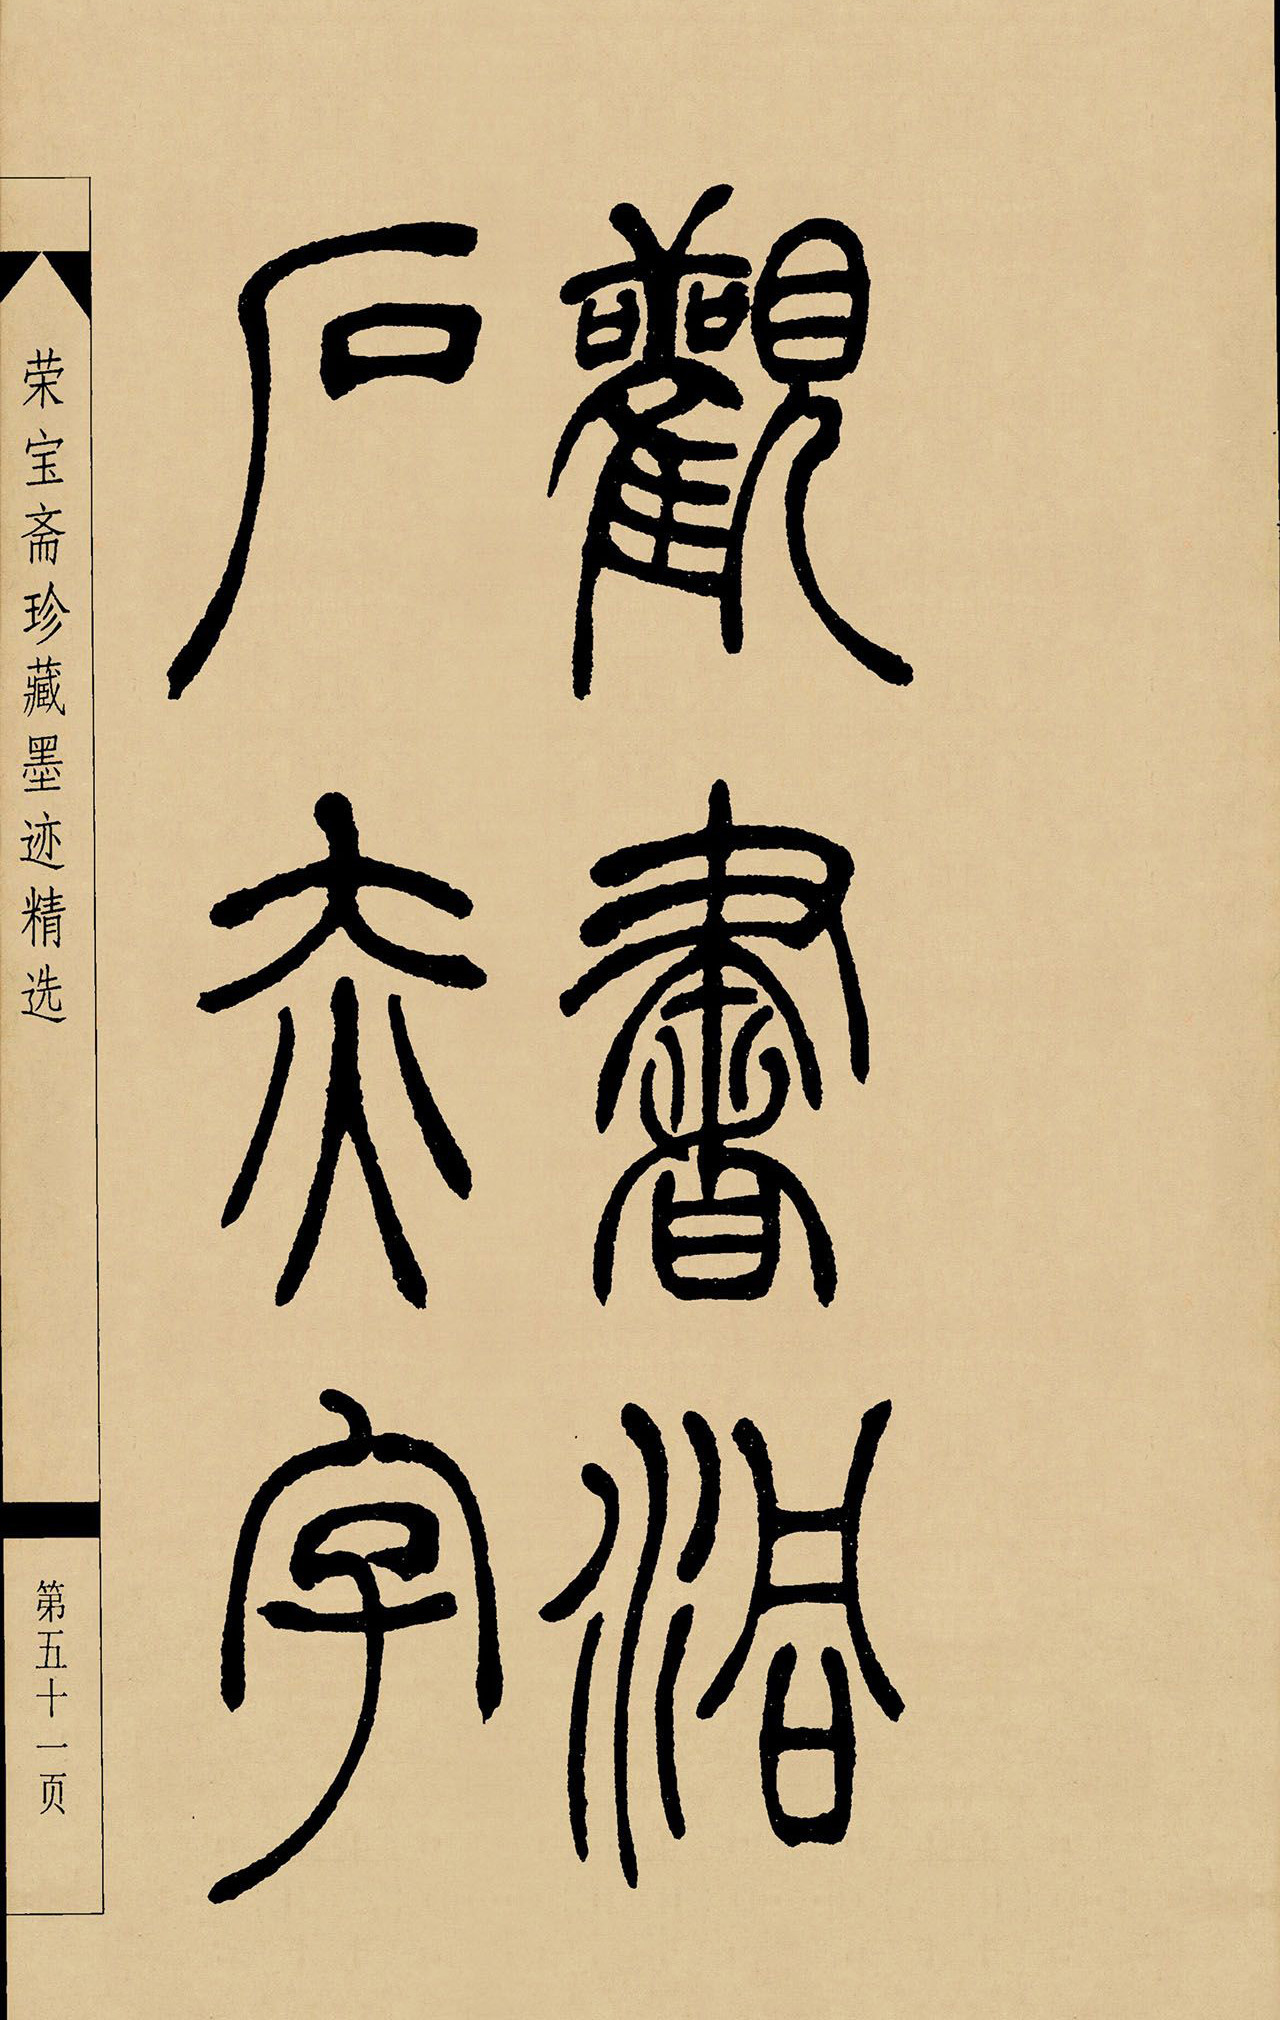 觀書
石赤字
荣宝斋珍藏墨迹精选
第五十一页